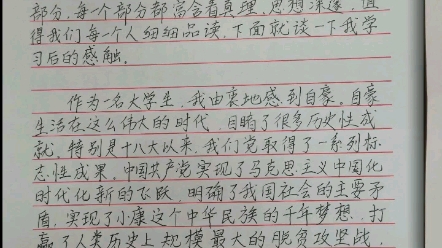 部分,每个部分都富含着真理、思想深邃,值
得我们每个人细细品读,下面就谈一下我学
习后的感触。
作为一名大学生,我由衷地感到自豪。自豪
生活在这么伟大的时代,目睹了很多历史性成
就。特别是十八大以来,我们党取得了一系列标
志性成果,中国共产党实现了马克思主义中国化
时代化新的飞跃,明确了我国社会的主要矛
盾,实现了小康这个中华民族的千年梦想,打
赢了人类历史上规模最大的脱贫攻坚战,